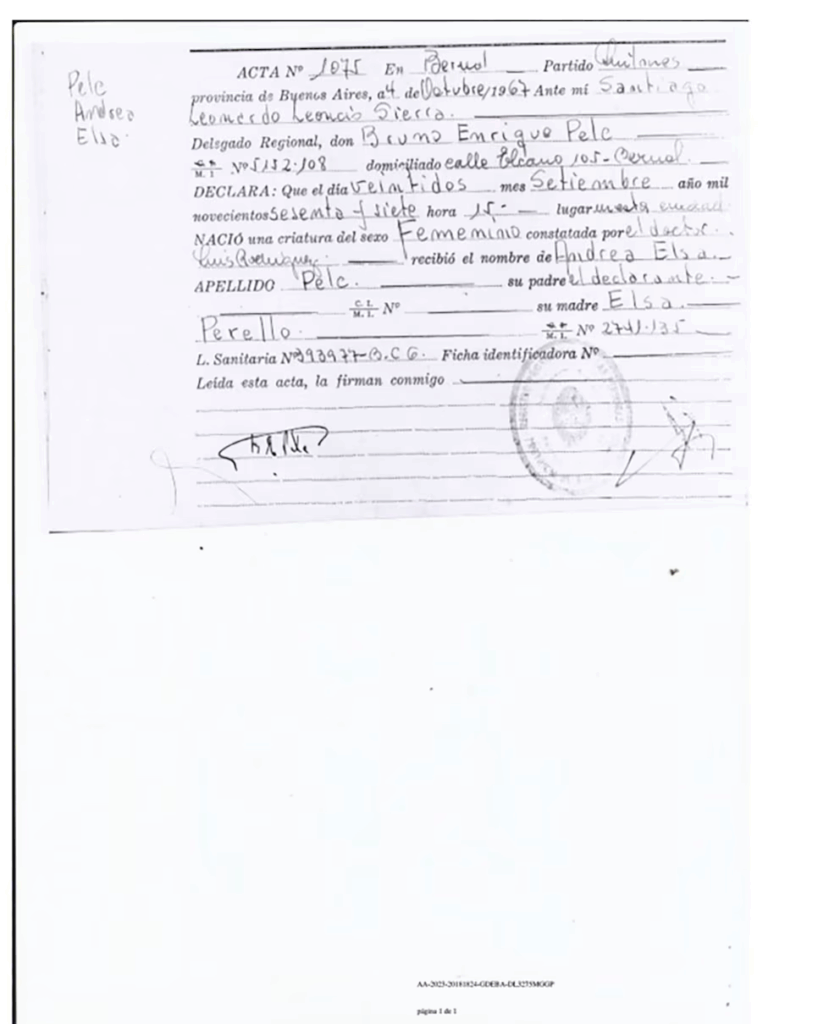 Pelc
Andrea
Elsa.
ACTA Nº 1075 En Bernal Partido Quilmes
provincia de Buenos Aires, a 4 de Octubre/1967 Ante mí Santiago
Leonardo Leoncio Sierra.
Delegado Regional, don Bruno Enrique Pelc
M. I. Nº 5152·108 domiciliado calle Elcano 105-Bernal.
DECLARA: Que el día Veintidos mes Setiembre año mil
novecientos Sesenta y siete hora 15,- lugar
NACIÓ una criatura del sexo Femenino constatada por el doctor
Luis Rodriguez recibió el nombre de Andrea Elsa.
APELLIDO Pelc. su padre el declarante.-
C. I. M. I. Nº su madre Elsa
Perello. M. I. Nº 2741·135
L. Sanitaria Nº 393977-B.C.G. Ficha identificadora Nº
Leída esta acta, la firman conmigo
AA-2023-20181824-GDEBA-DL3275MGGP
página 1 de 1